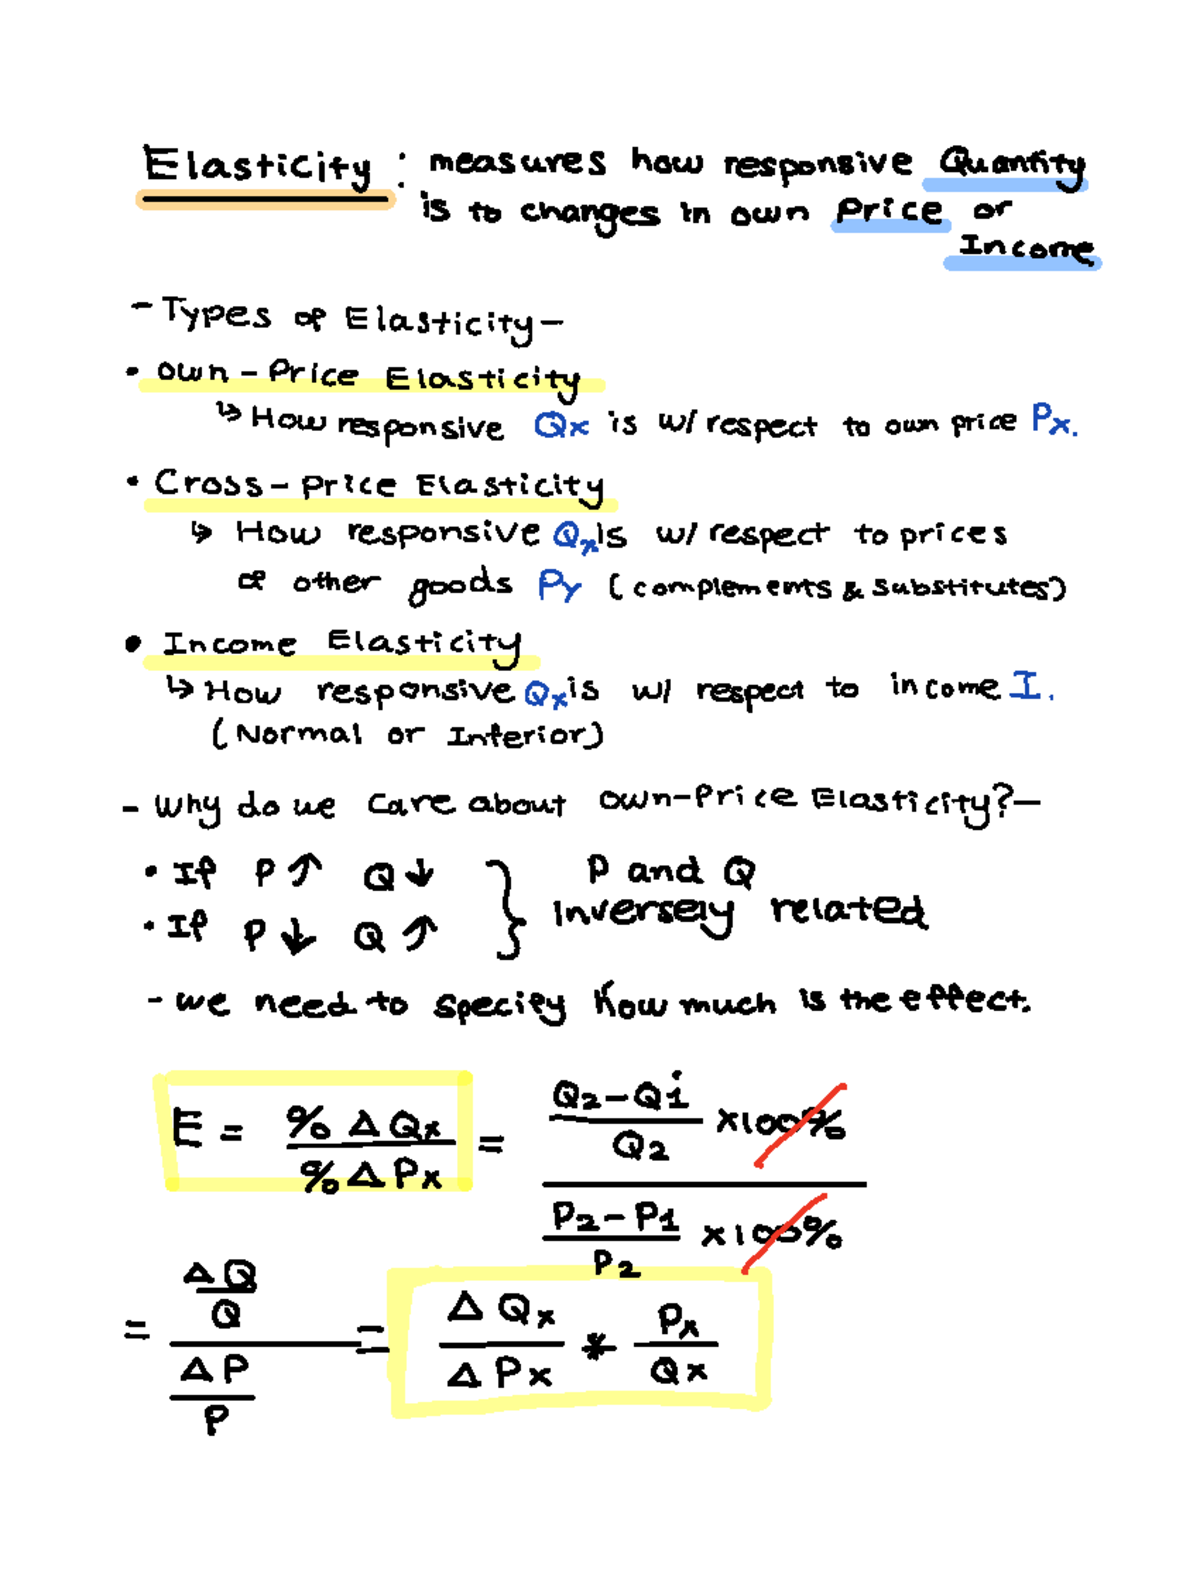 Elasticity: measures how responsive Quantity
is to changes in own Price or
Income
- Types of Elasticity -
• own - Price Elasticity
↳ How responsive Qx is w/ respect to own price Px.
• Cross - Price Elasticity
↳ How responsive Qx is w/ respect to prices
of other goods Py (complements & Substitutes)
• Income Elasticity
↳ How responsive Qx is w/ respect to income I.
(Normal or Inferior)
- Why do we Care about own-Price Elasticity? -
• If P ↑ Q ↓ } P and Q
• If P ↓ Q ↑ inversely related
- we need to specify how much is the effect.
E = % Δ Qx / % Δ Px = Q2 - Q1 / Q2 x 100% / P2 - P1 / P2 x 100%
= ΔQ / Q / ΔP / P = Δ Qx / Δ Px * Px / Qx